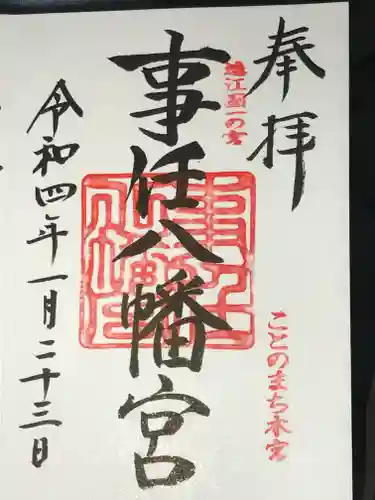 奉拝
遠江國一の宮
事任八幡宮
ことのまち本宮
令和四年一月二十三日